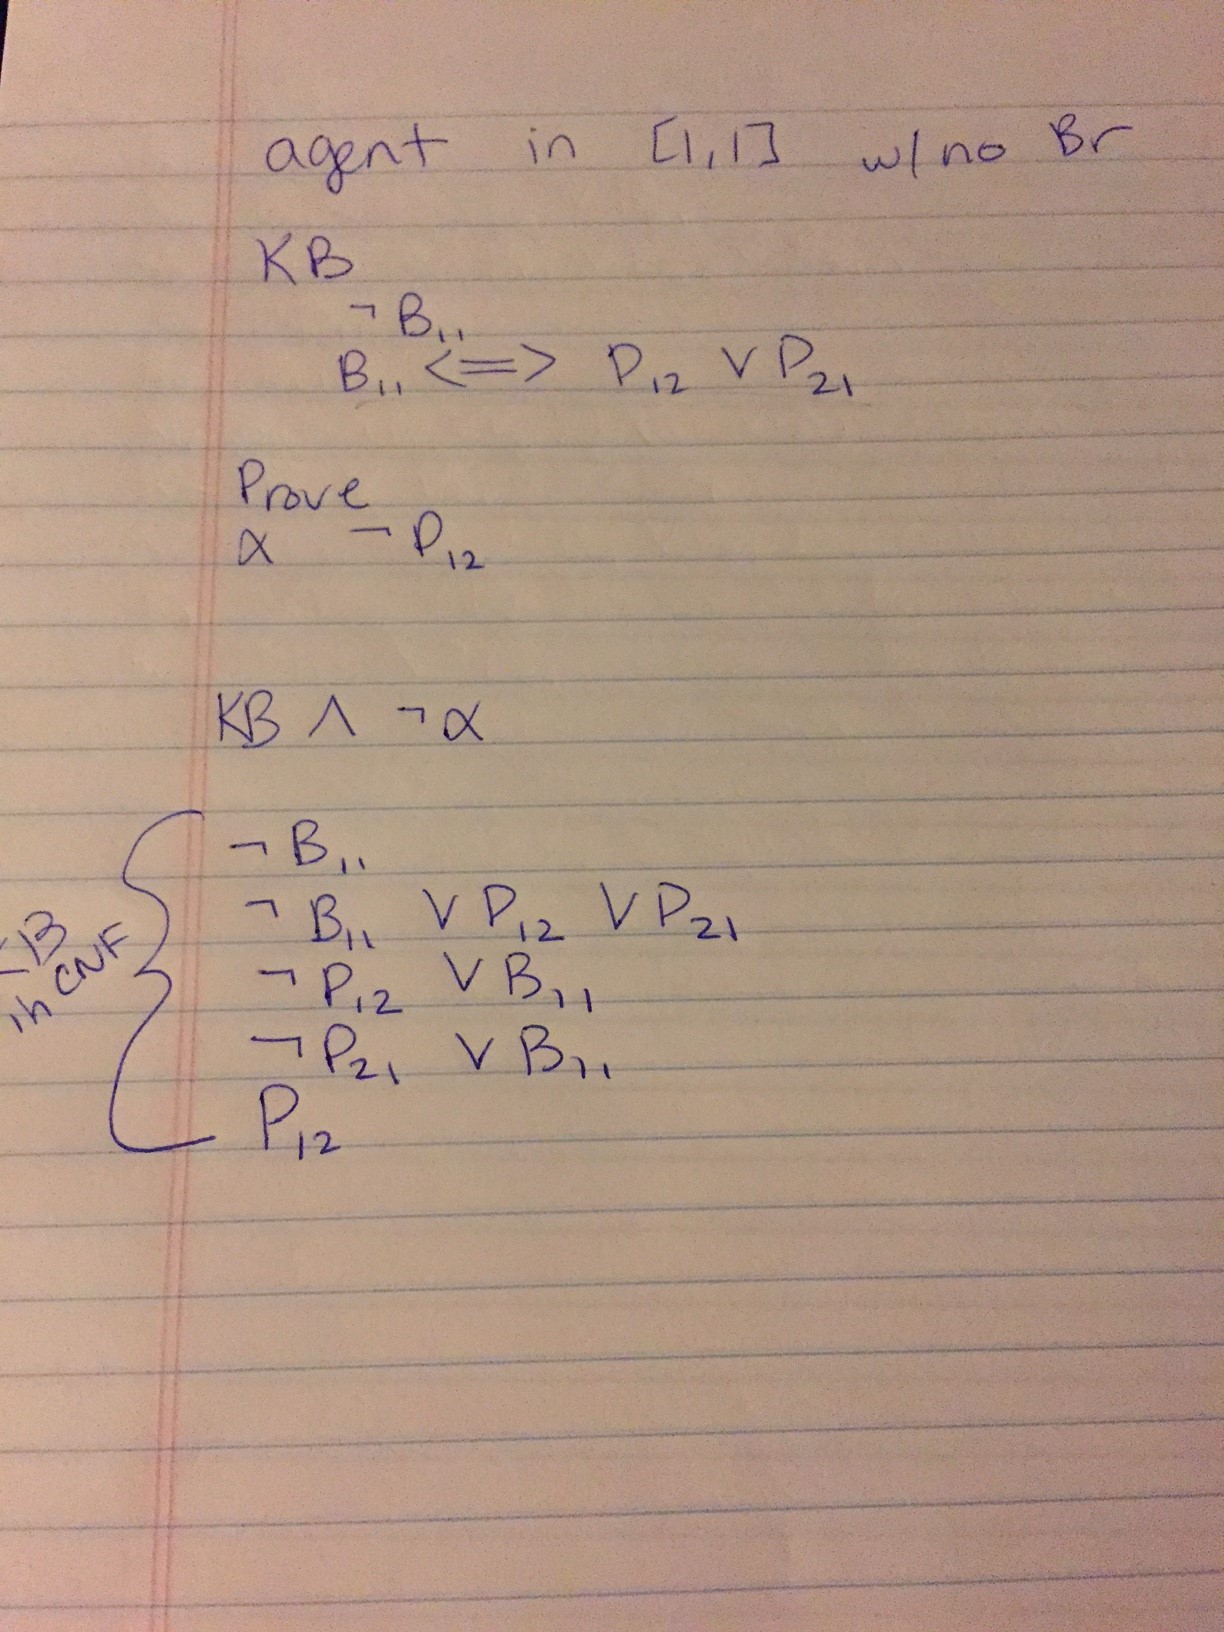 agent in [1,1] w/no Br
KB
¬ B₁₁
B₁₁ <=> P₁₂ ∨ P₂₁
Prove
α ¬ P₁₂
KB ∧ ¬ α
¬ B₁₁
¬ B₁₁ ∨ P₁₂ ∨ P₂₁
¬ P₁₂ ∨ B₁₁
¬ P₂₁ ∨ B₁₁
P₁₂
KB
in CNF